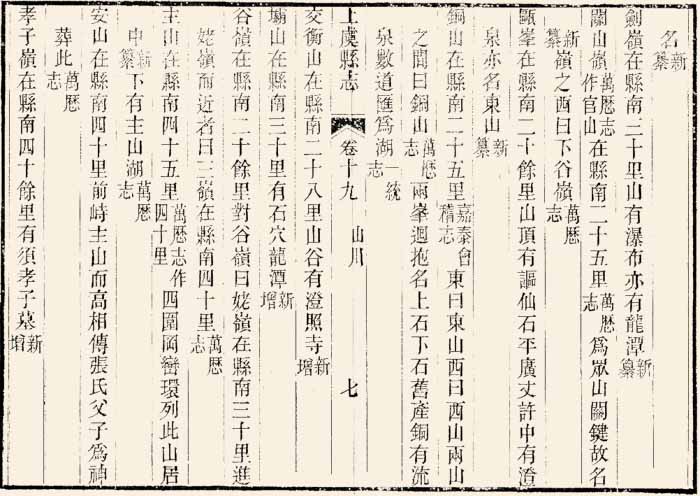 名新纂
劍嶺在縣南三十里山有瀑布亦有龍潭新纂
關山嶺萬歷志作官山在縣南二十五里萬歷志為眾山關鍵故名
新纂嶺之西曰下谷嶺萬歷志
甌峯在縣南二十餘里山頂有謳仙石平廣丈許中有澄
泉亦名東山新纂
銅山在縣南二十五里嘉泰會稽志東曰東山西曰西山兩山
之間曰銅山萬歷志兩峯迴抱名上石下石舊產銅有流
泉數道匯爲湖一統志
上虞縣志 卷十九 山川 七
交衡山在縣南二十八里山谷有澄照寺新增
山在縣南三十里有石穴龍潭新增
谷嶺在縣南二十餘里對谷嶺曰姥嶺在縣南三十里進
姥嶺而近者曰三嶺在縣南四十里萬歷志
主山在縣南四十五里萬歷志作四十里四圍岡巒環列此山居
中新纂下有主山湖萬歷志
安山在縣南四十里前峙主山而高相傳張氏父子為神
葬此萬歷志
孝子嶺在縣南四十餘里有須孝子墓新增